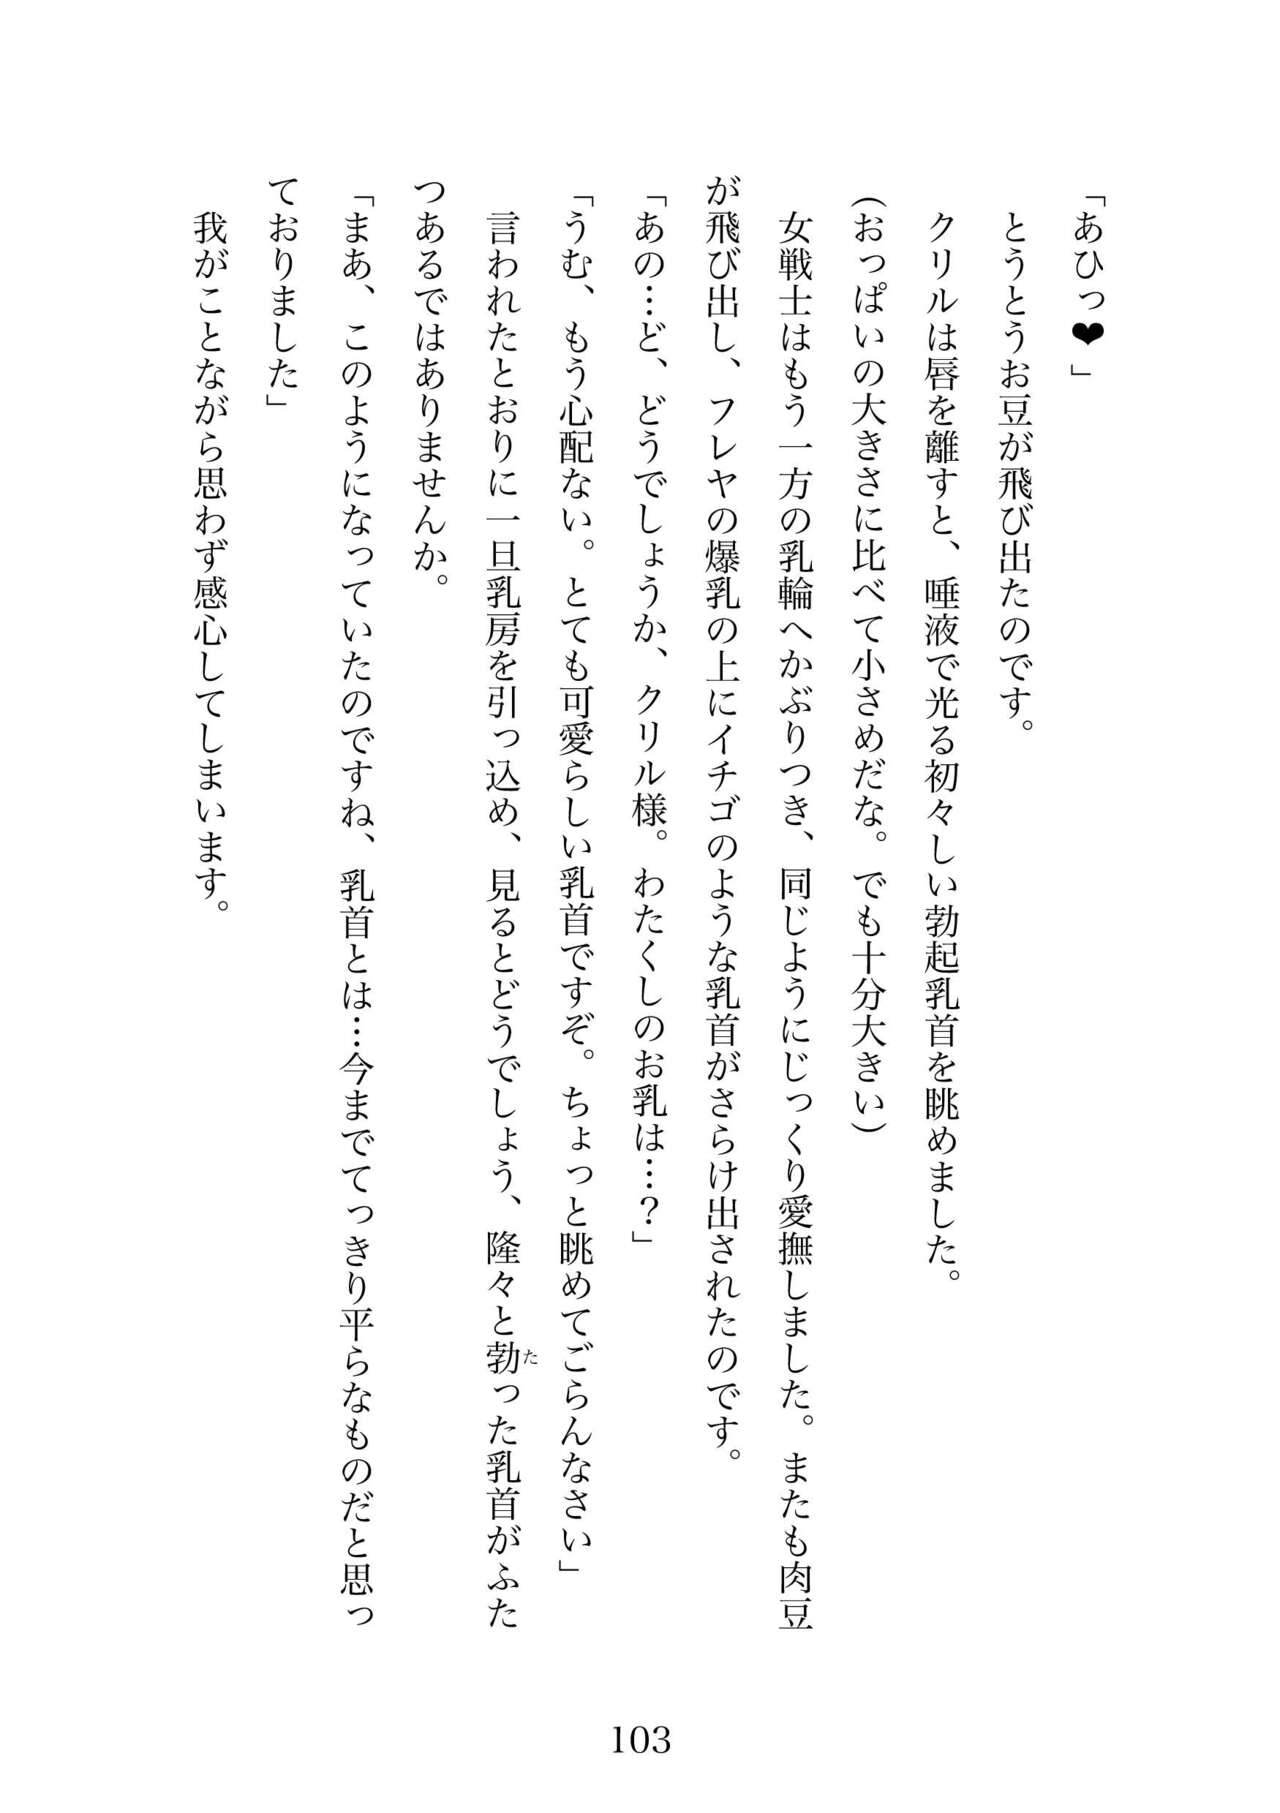 「あひっ❤」
とうとうお豆が飛び出たのです。
クリルは唇を離すと、唾液で光る初々しい勃起乳首を眺めました。
（おっぱいの大きさに比べて小さめだな。でも十分大きい）
女戦士はもう一方の乳輪へかぶりつき、同じようにじっくり愛撫しました。またも肉豆
が飛び出し、フレヤの爆乳の上にイチゴのような乳首がさらけ出されたのです。
「あの…ど、どうでしょうか、クリル様。わたくしのお乳は…？」
「うむ、もう心配ない。とても可愛らしい乳首ですぞ。ちょっと眺めてごらんなさい」
言われたとおりに一旦乳房を引っ込め、見るとどうでしょう、隆々と勃った乳首がふた
つあるではありませんか。
「まあ、このようになっていたのですね、乳首とは…今までてっきり平らなものだと思っ
ておりました」
我がことながら思わず感心してしまいます。
た
103